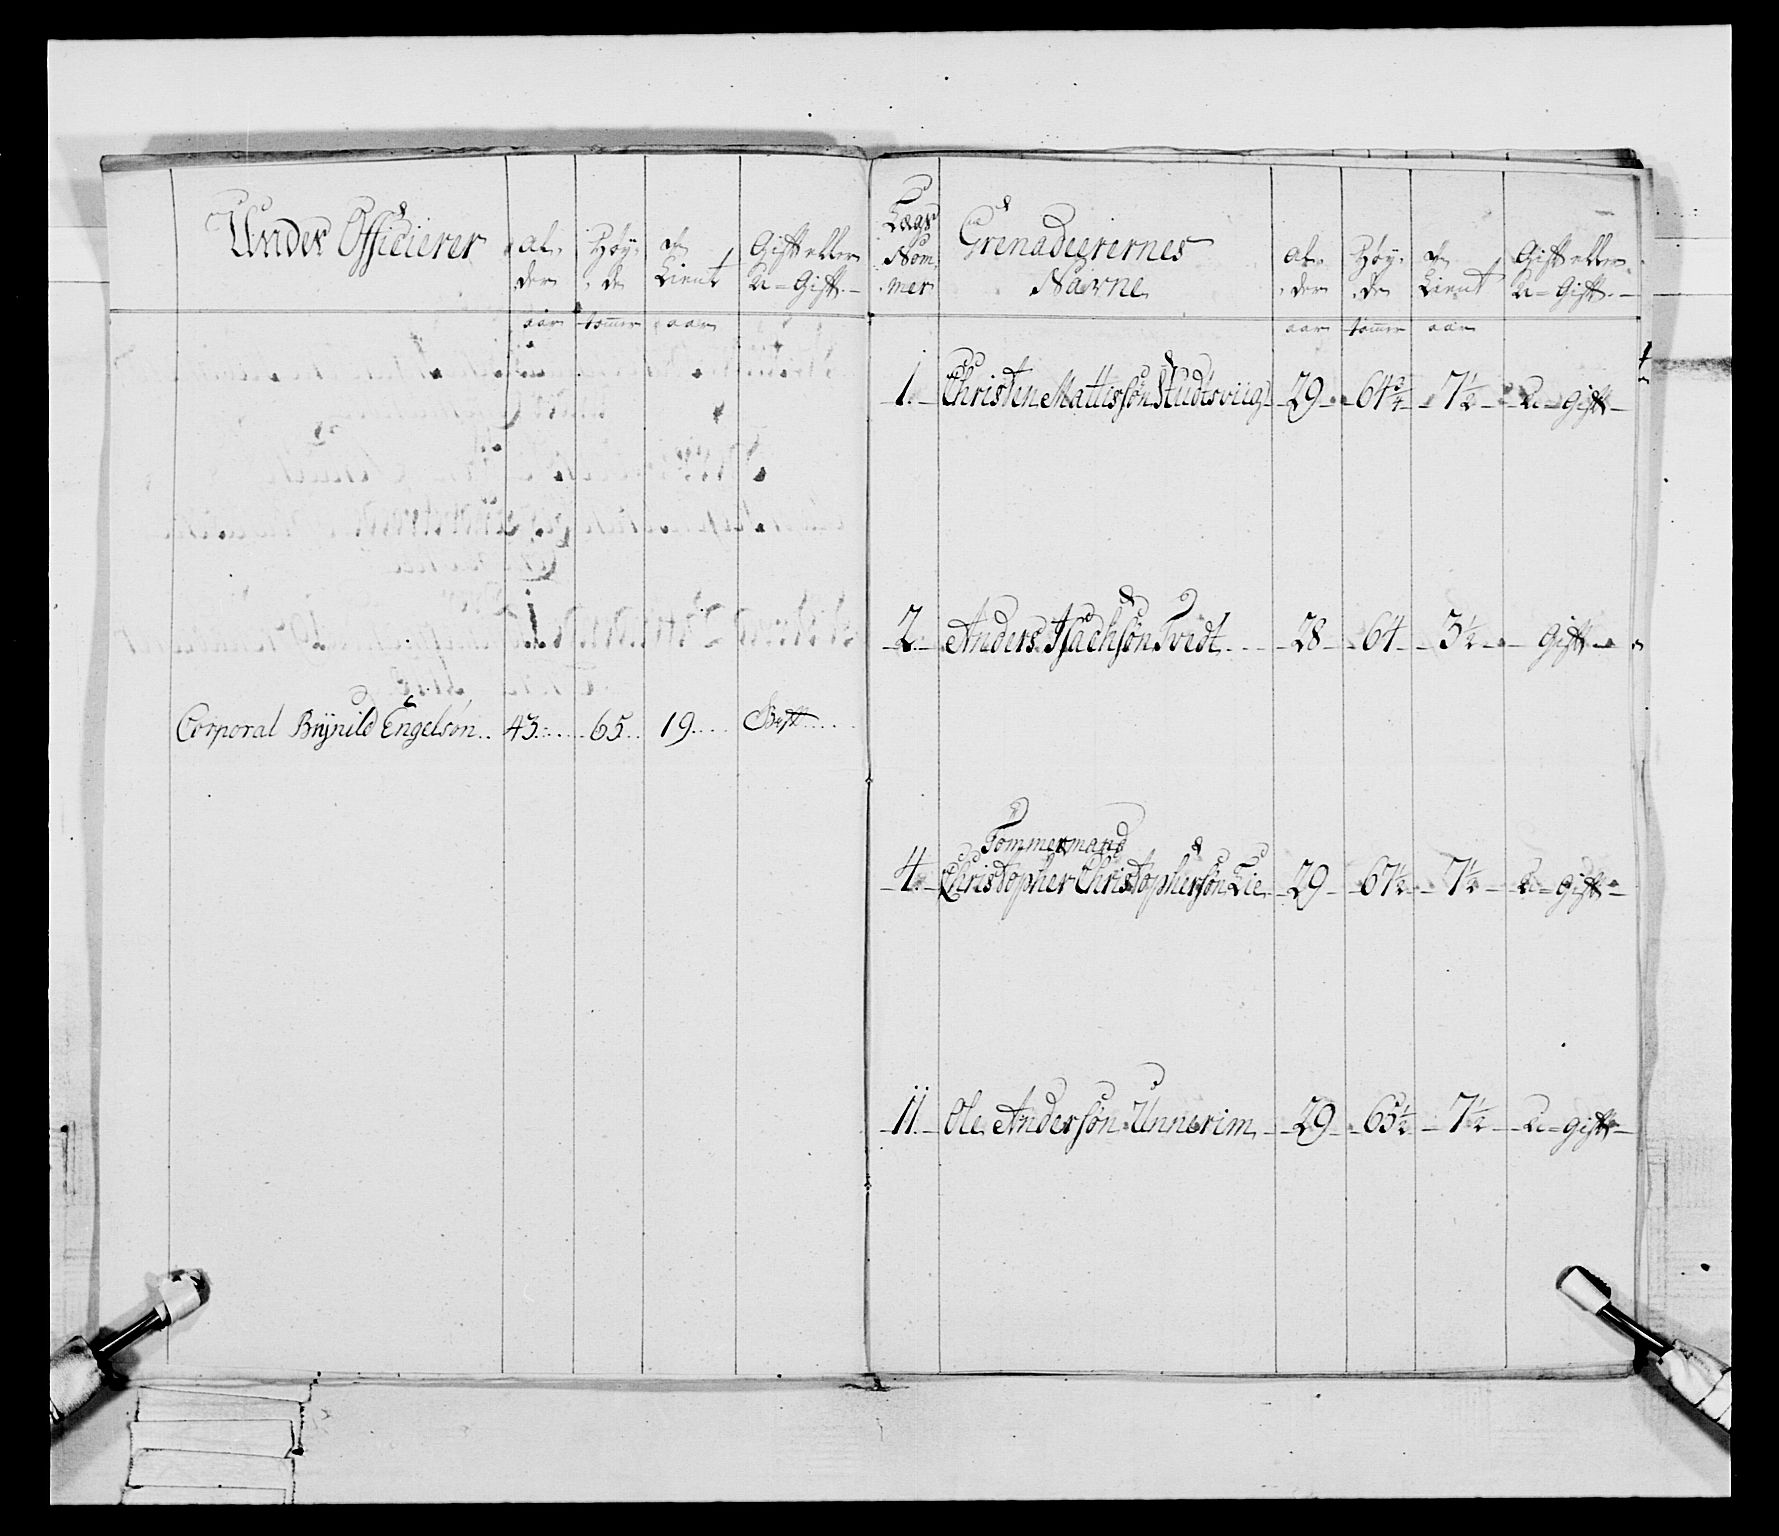 Under Officierer
Al-
der
Høy-
de
Tient
Gift eller
U-Gift.
aar tomer aar
Corporal Brÿnild Engelsøn.. 43..... 65.. 19.... Gift.....
Lægs
Nom
mer
Grenadeerernes
Navne
Al-
der
Høy-
de
Tient
Gift eller
U-Gift.
aar tomer aar
1. Christen Mattissøn 29 64 3/4 7 1/2 U-gift
2. Anders Isachsøn Tvedt 28 64 3 1/2 Gift
Tømmermand
4. Christopher Christophersøn Lie 29 67 1/2 7 1/2 U-gift
11. Ole Andersøn Unnerim 29 65 1/2 7 1/2 U-gift